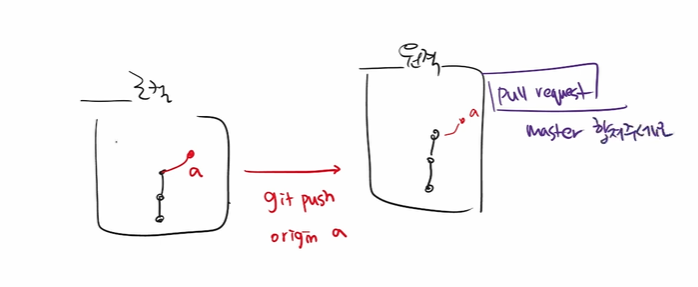 로컬
원격
a
a
git push
origin a
pull request
master 합쳐주세요